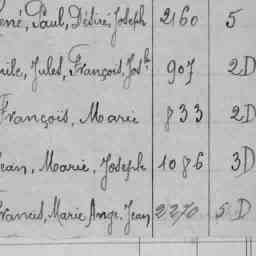 ené, Paul, Désiré, Joseph 2160 5
ile, Jules, François, Jos 907 2D
François, Marie 833 2D
ean, Marie, Joseph 1086 3D
Francis, Marie Ange. Jean 2270 5D